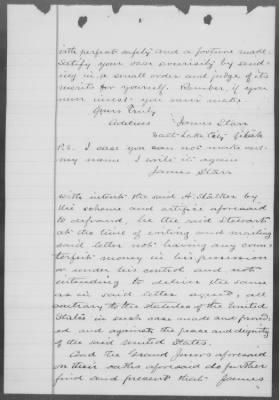 with perfect safety and a fortune made.
Satisfy your own curiosity by send-
ing in a small order and judge of its
merits for yourself. Remember, if you
never invest you never make.
Yours Truly
Address James Starr
Salt Lake City Utah
P.S. I case you can not make out
my name I write it again
James Starr
with intent the said A. Stalker by
the scheme and artifice aforesaid
to defraud, he the said Stewart
at the time of writing and mailing
said letter not having any coun-
terfeit money in his possession
or under his control and not
intending to deliver the same
as in said letter agreed, all
contrary to the statutes of the United
States in such case made and provid-
ed and against the peace and dignity
of the said United States.
And the Grand Jurors aforesaid
on their oaths aforesaid do further
find and present that James